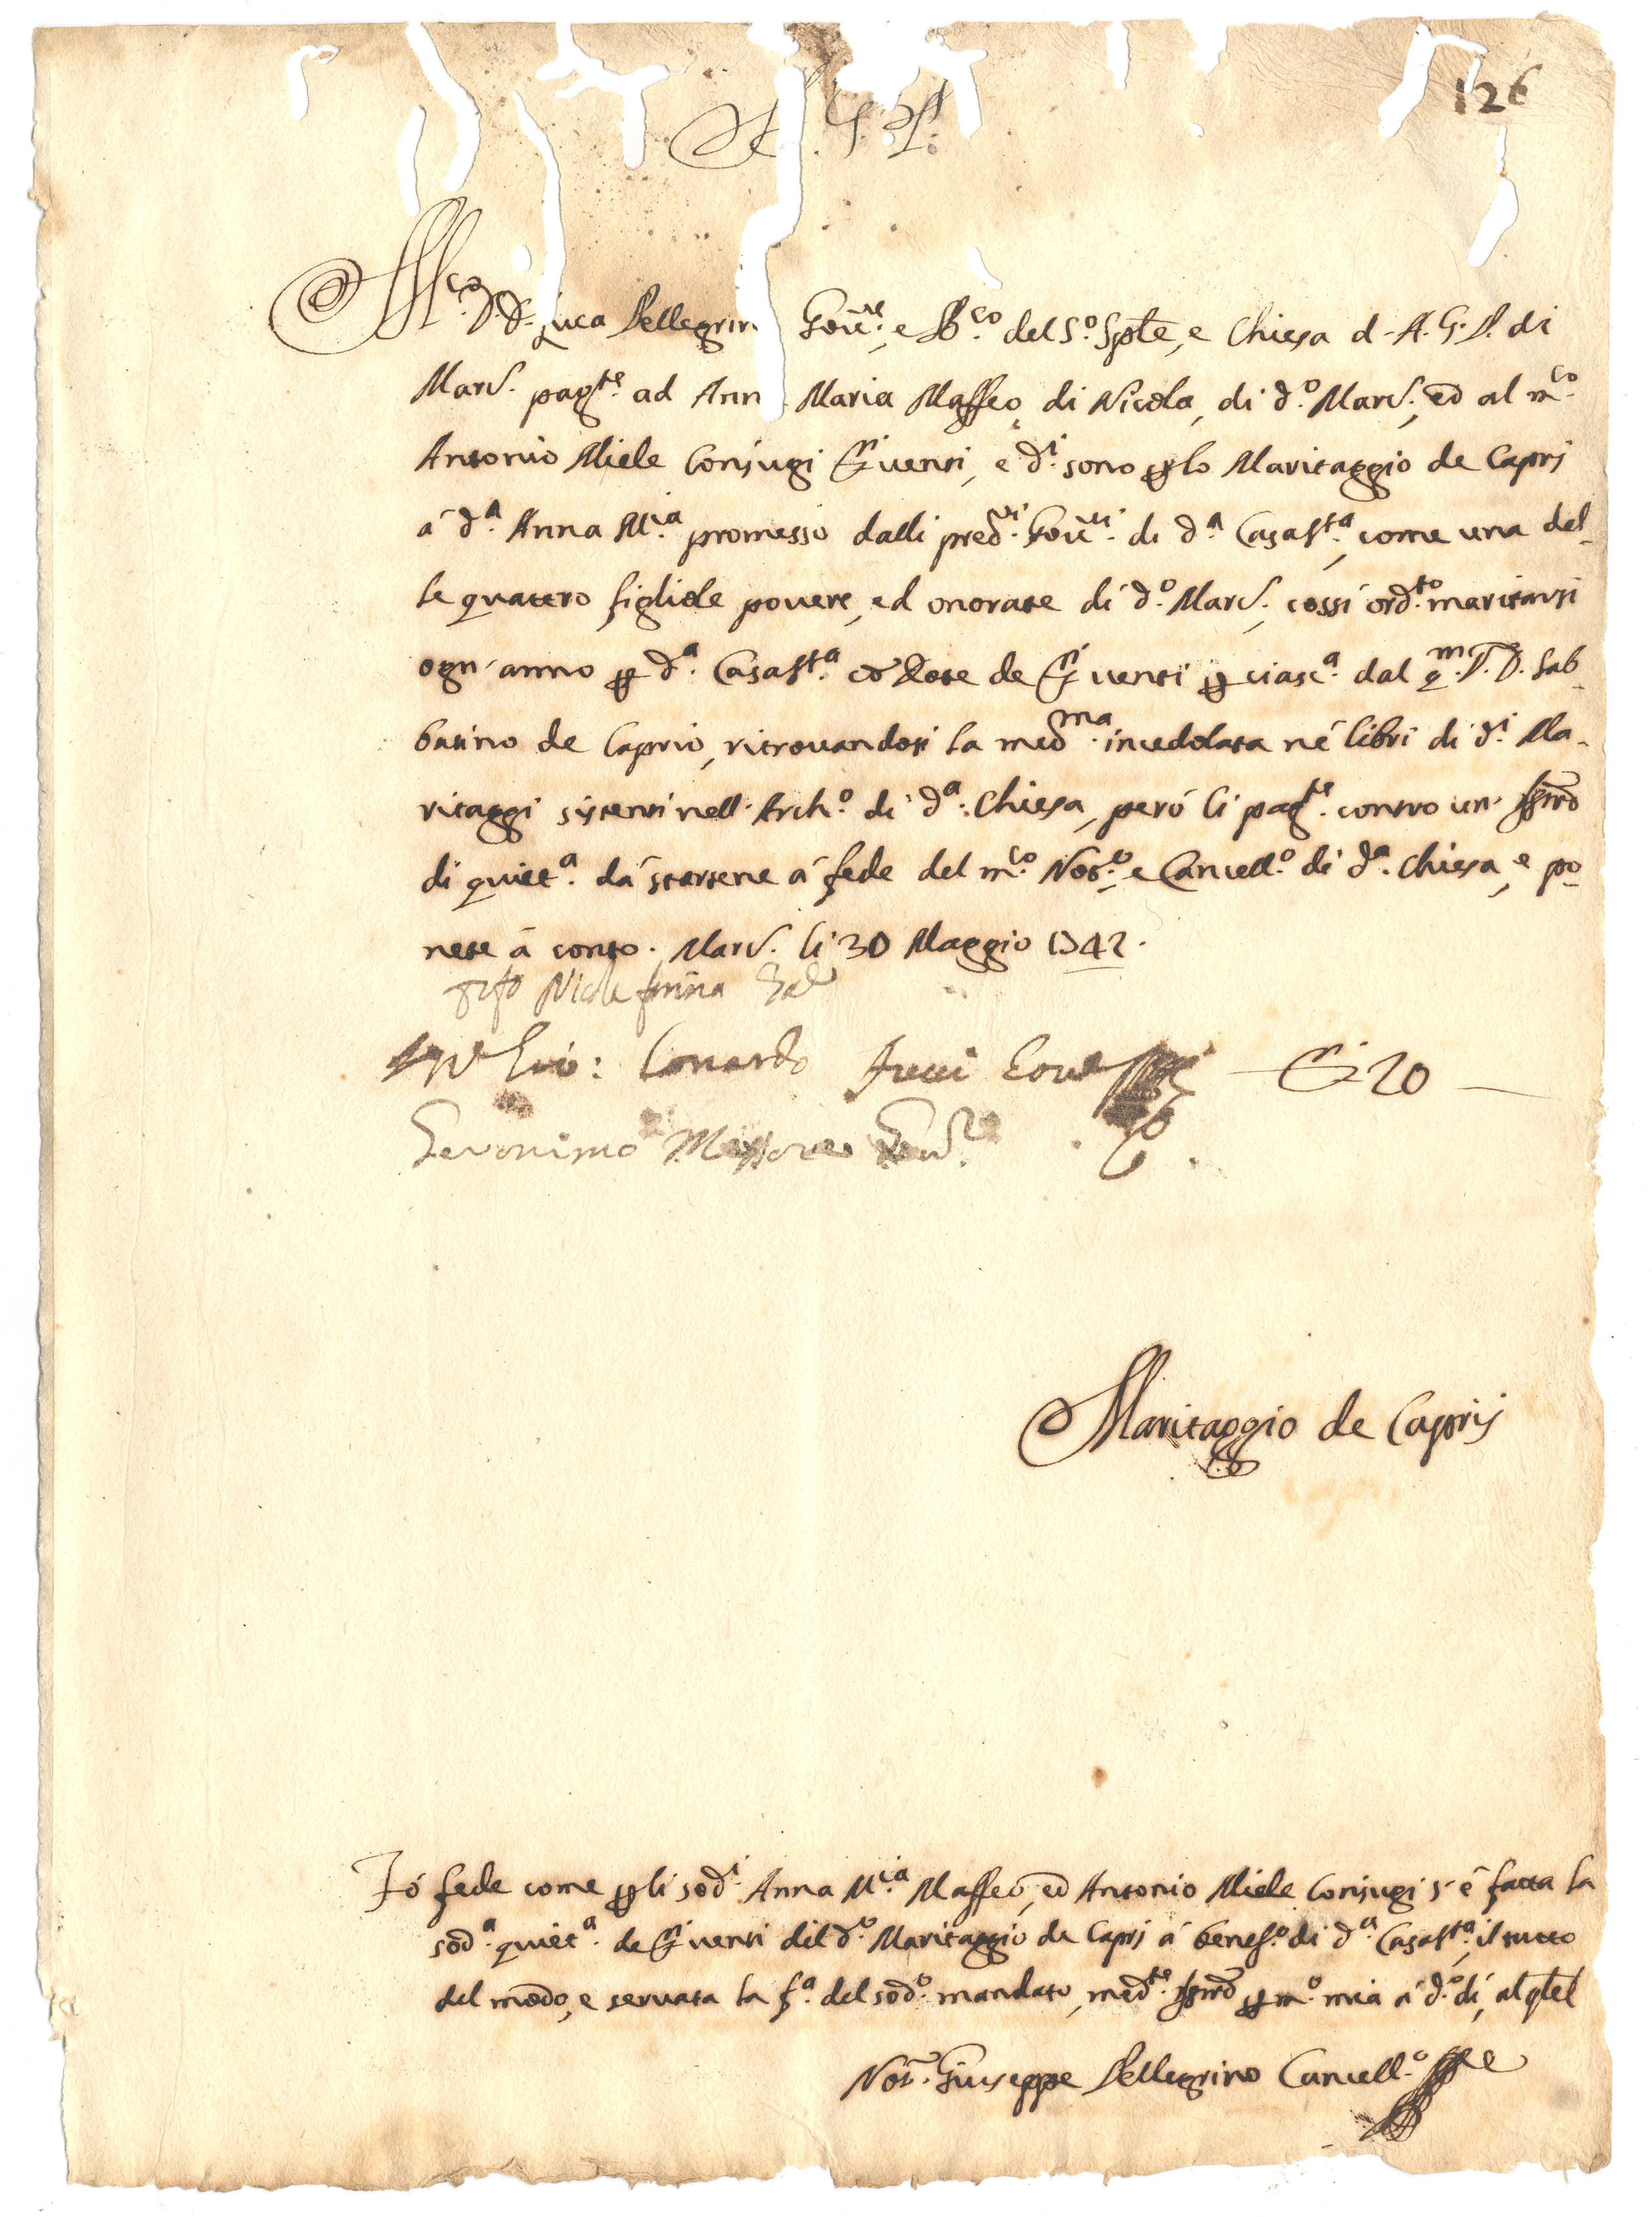 126
A. G. P.
M.co D.r D. Luca Pellegrin Gov.re, e B.co del S.o Sple, e Chiesa d. A. G. P. di
Marc. pag.te ad Ann Maria Maffeo di Nicola, di d.o Marc., ed al m.co
Antonio Miele Conjugi d.ti venti, e d.i sono p lo Maritaggio de Caprj
á d.a Anna M.ia promesso dalli pred.ti Gov.ri di d.a Casa S.ta, come una del-
le quattro figliole povere, ed onorate di d.o Marc., cossí ord.to maritarsi
ogn'anno p d.a Casa S.ta co dote de d.ti venti p ciasc.a dal q.m D. D. Sab-
batino de Caprio, ritrovandosi la med.ma incedolata né libri di d.i Ma-
ritaggi sistenti nell'Arch.o di d.a Chiesa, peró li pag.te contro un
di quiet.a dá starsene á fede del m.co Not.o, e Cancell.o di d.a Chiesa, e po-
nete á conto. Marc. li 30 Maggio 1742.
Nicola
Conardo
d.ti 20
Geronimo
Maritaggio de Caprij
Fó fede come p li sod.i Anna M.ia Maffeo, ed Antonio Miele Conjugi s'é fatta la
sod.a quiet.a de d.ti venti del d.o Maritaggio de Caprj á benef.o di d.a Casa S.ta, il tutto
del modo, e servata la f.a del sod.o mandato, med.te p m.o mia á d.o dí, al qle
Not. Giuseppe Pellegrino Cancell.o